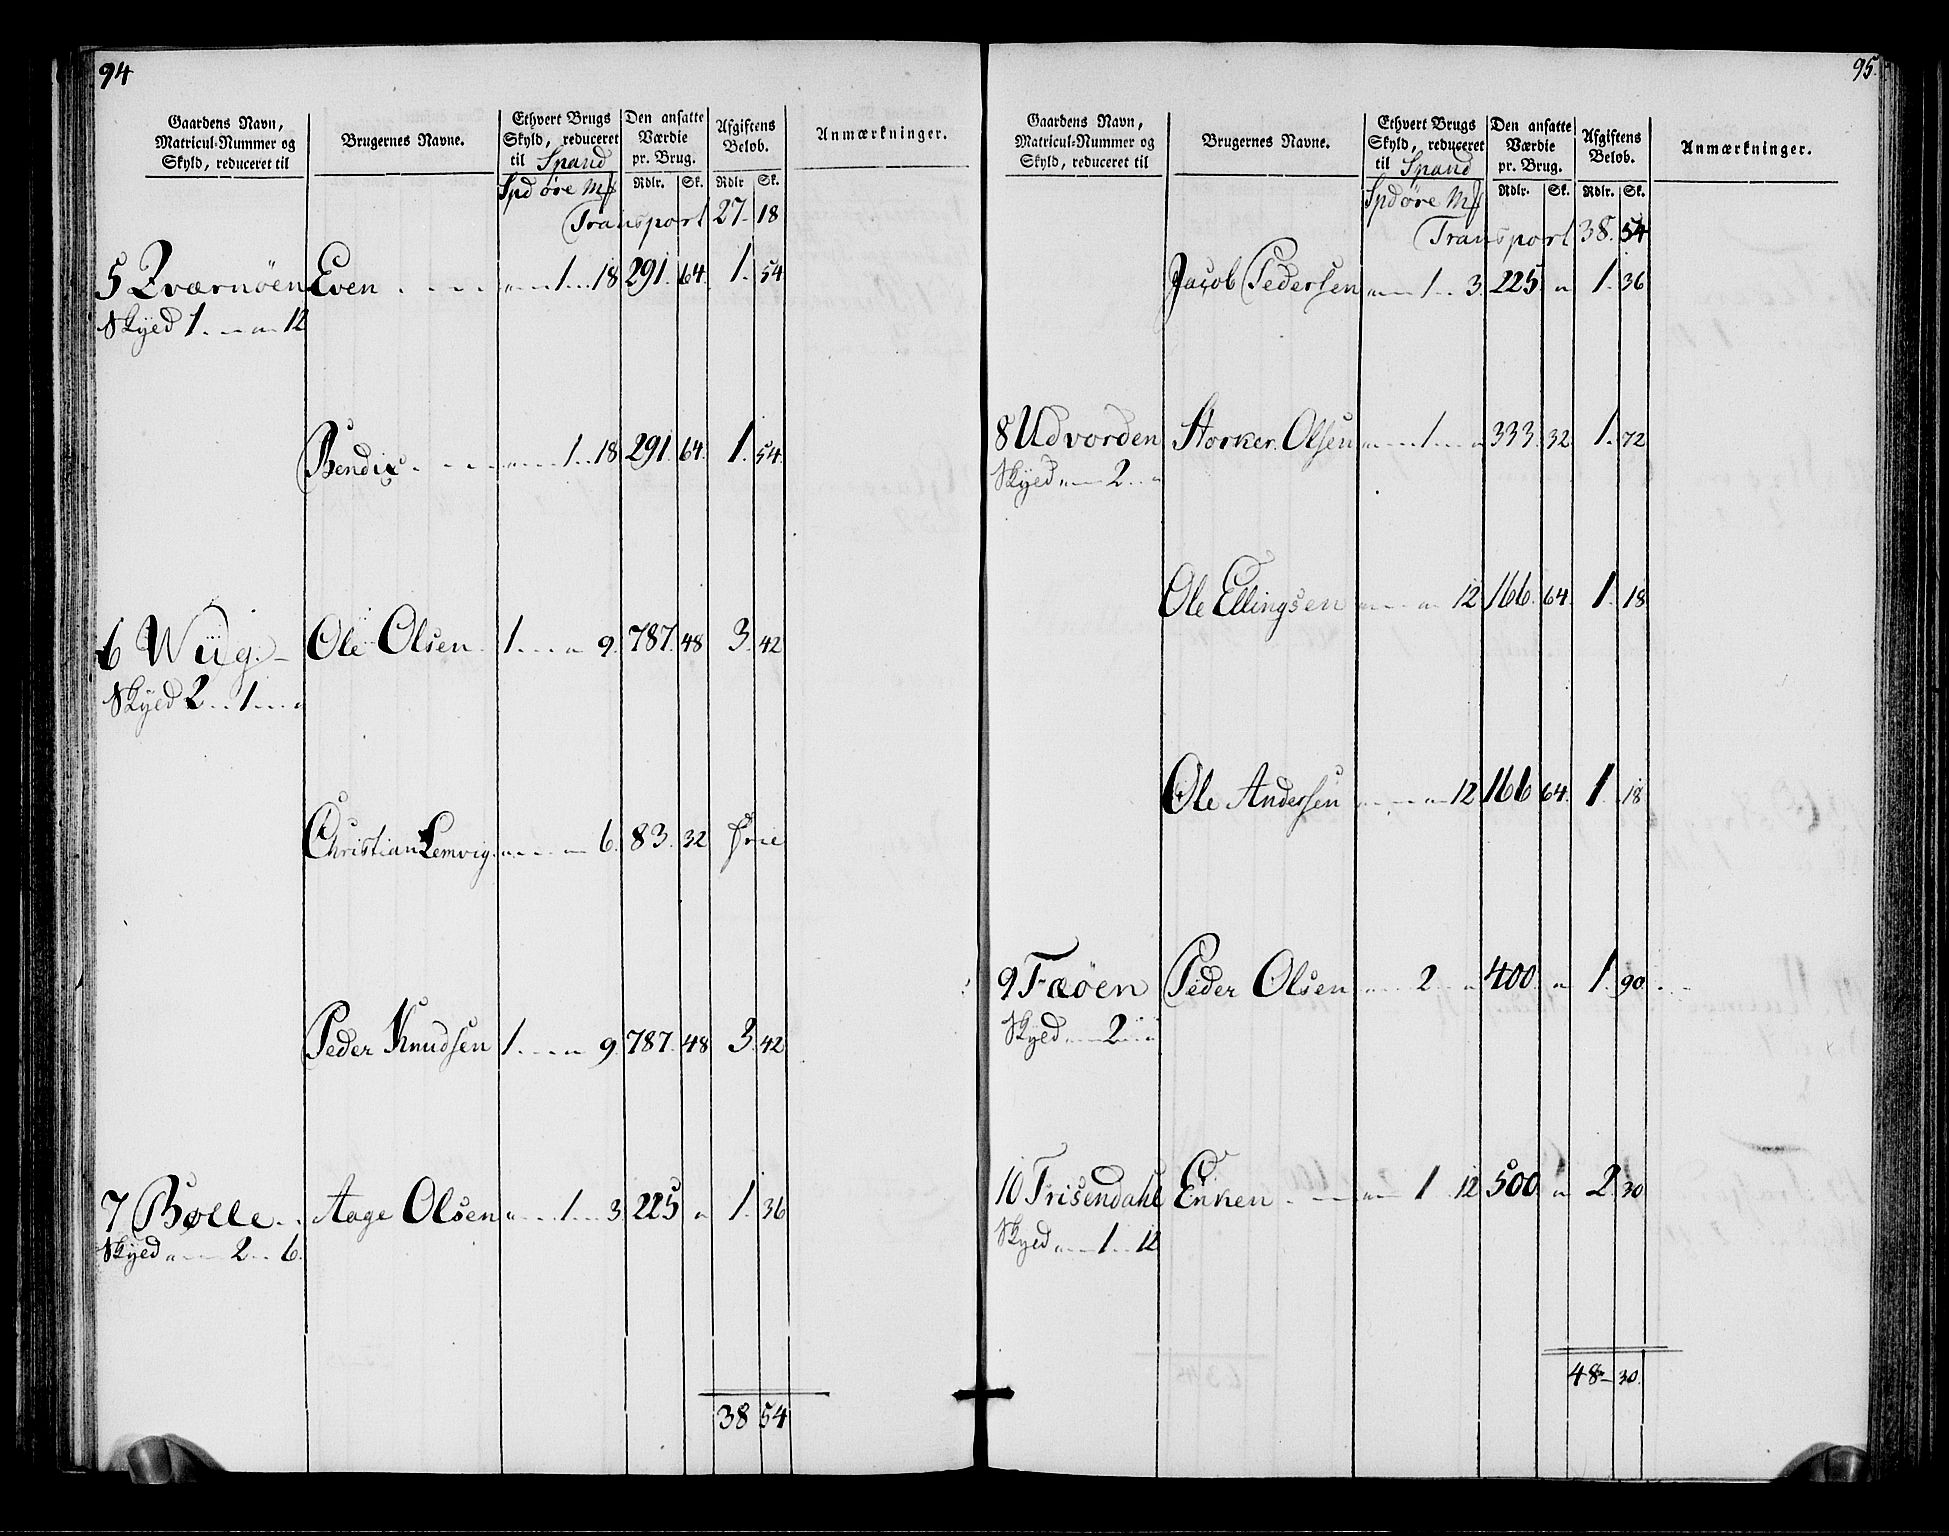 94
Gaardens Navn,
Matricul-Nummer og
Skyld, reduceret til
Brugernes Navne.
Ethvert Brugs
Skyld, reduceret
til Spand
Spd øre Mf
Den ansatte
Værdie
pr. Brug.
Rdlr. Sk.
Afgiftens
Beløb.
Rdlr Sk.
Anmærkninger.
Transport 27 18
5 Qværnöen Even 1 18 291 64 1 54
Skyed 1 " 12
Bendix 1 18 291 64 1 54
6 Wiig Ole Olsen 1 " 9 787 48 3 42
Skyed 2 1 "
Christian Lemvig 6 83 32 frie
Peder Knudsen 1 " 9 787 48 3 42
7 Bølle Aage Olsen " 1 3 225 " 1 36
Skyed " 2 6
38 54
95
Gaardens Navn,
Matricul-Nummer og
Skyld, reduceret til
Brugernes Navne.
Ethvert Brugs
Skyld, reduceret
til Spand
Spd øre Mf
Den ansatte
Værdie
pr. Brug.
Rdlr. Sk.
Afgiftens
Beløb.
Rdlr. Sk.
Anmærkninger.
Transport 38 54
Jacob Pedersen " 1 3 225 " 1 36
8 Udvorden Storker Olsen " 1 " 333 32 1 72
Skyed " 2 "
Ole Ellingsen " " 12 166 64 1 18
Ole Andersen " " 12 166 64 1 18
9 Fæöen Peder Olsen " 2 " 400 " 1 90
Skyed " 2 "
10 Frisendahl Enken " 1 12 500 " 2 30
Skyed " 1 12
48 30